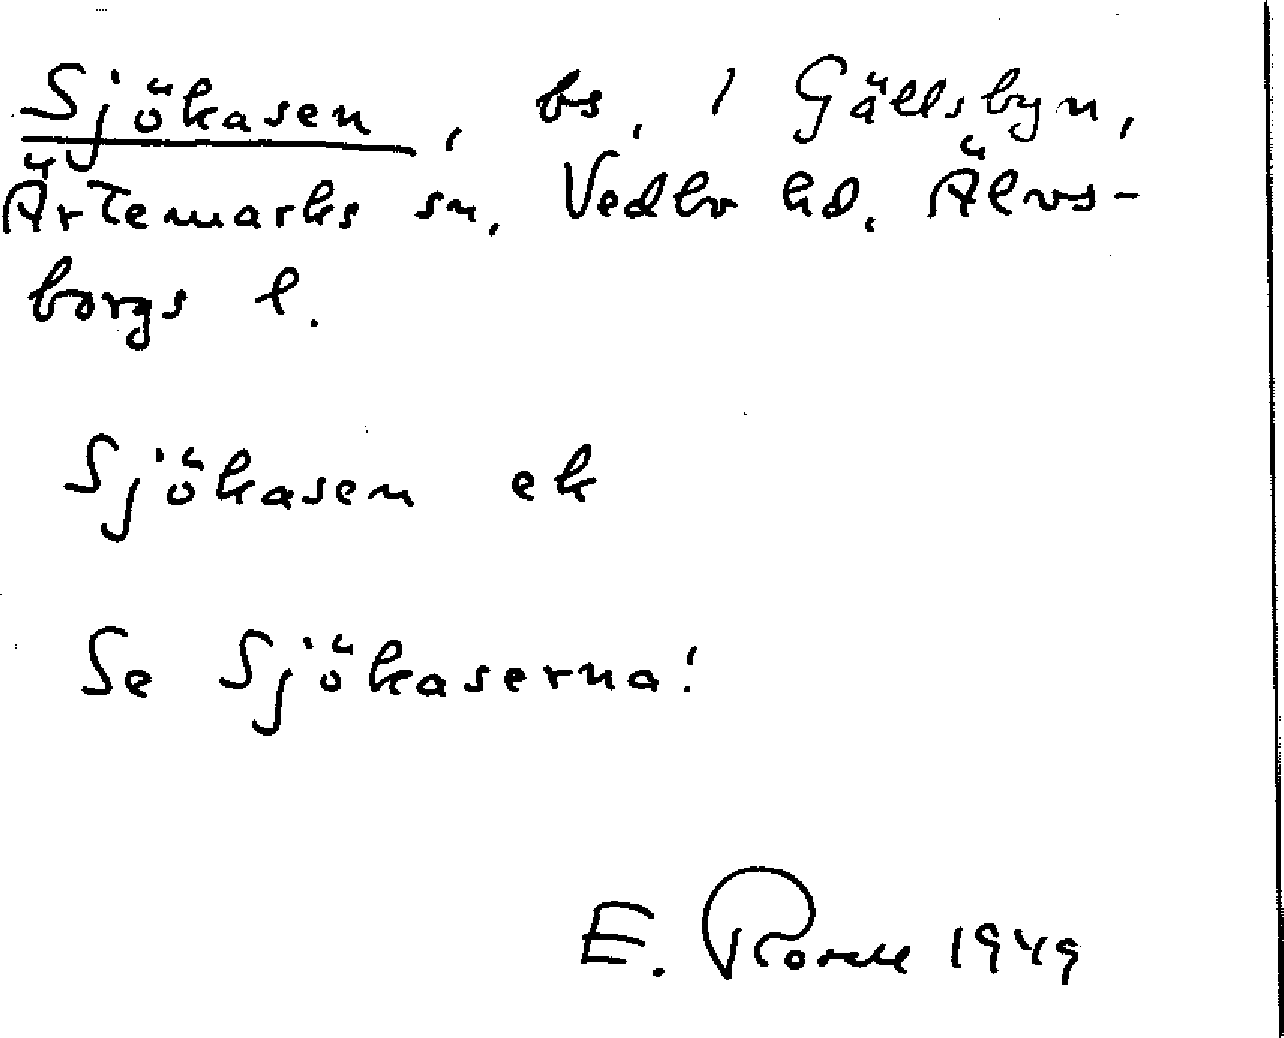 Sjökasen, bs, i Gällsbyn,
Ärtemarks sn, Vedbo hd, Älvs-
borgs l.
Sjökasen ek
Se Sjökaserna!
E. 1949